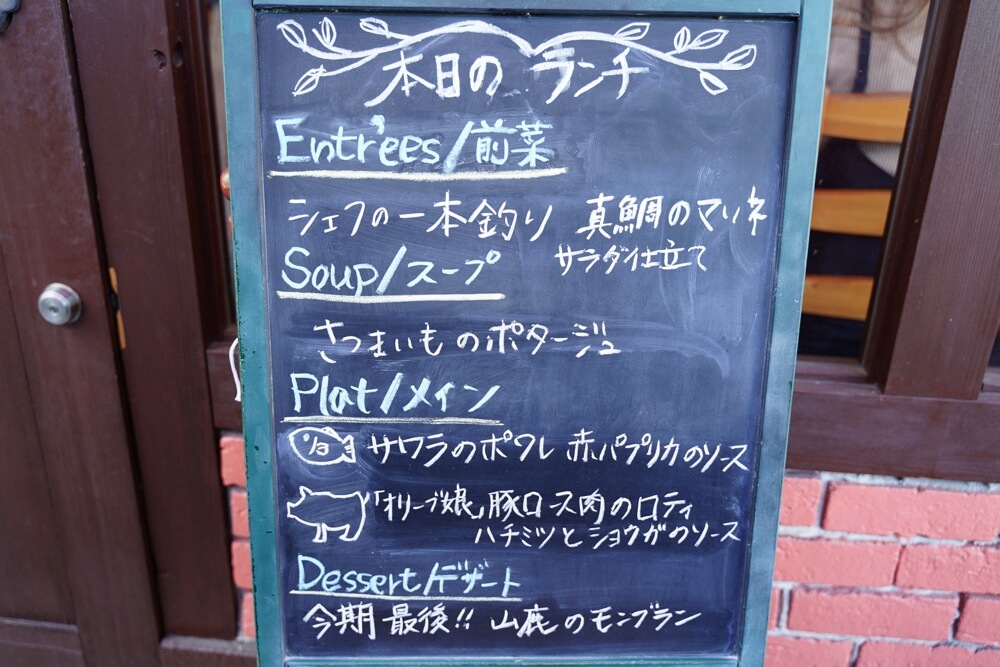 本日のランチ
Entrées/前菜
シェフの一本釣り 真鯛のマリネ
サラダ仕立て
Soup/スープ
さつまいものポタージュ
Plat/メイン
サワラのポワレ 赤パプリカのソース
「オリーブ娘」豚ロース肉のロティ
ハチミツとショウガのソース
Dessert/デザート
今期最後!! 山鹿のモンブラン